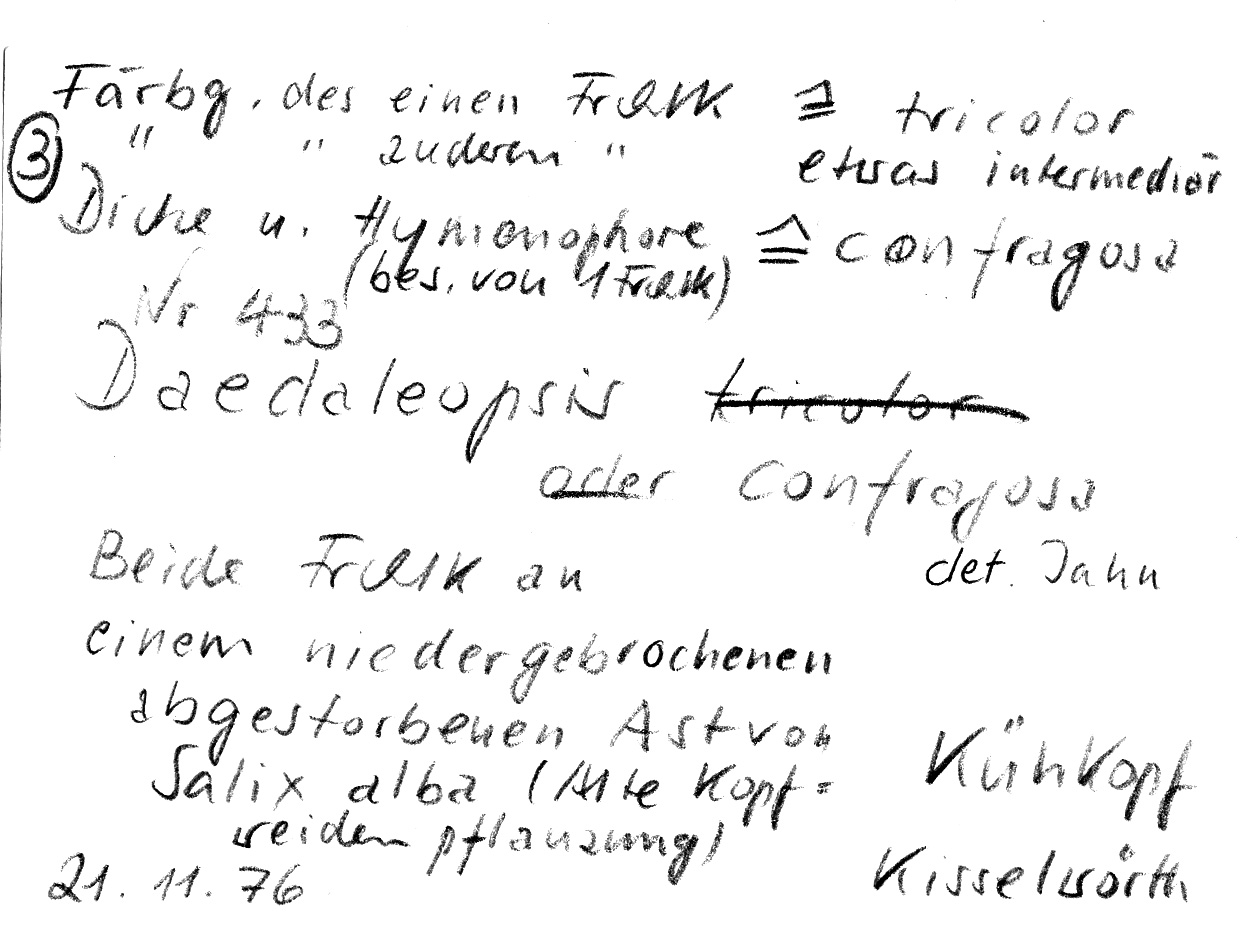 Färbg. des einen FrKK ≙ tricolor
" " anderen " etwas intermediär
③
Dicke u. Hymenophore ≙ confragosa
(bes. von 1 FrKK)
Nr 433
Daedaleopsis tricolor
oder confragosa
det. Jahn
Beide FrKK an
einem niedergebrochenen
abgestorbenen Ast von
Salix alba (Alte Kopf=
weidenpflanzung)
Kühkopf
Kisselwörth
21. 11. 76